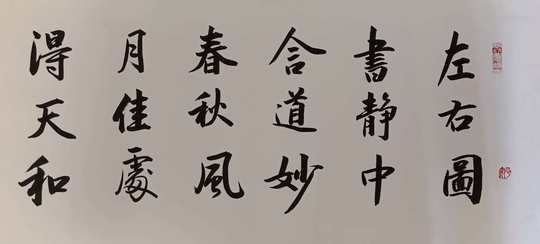 左右圖
書静中
含道妙
春秋風
月佳處
得天和